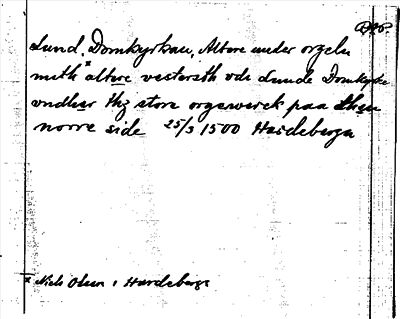 Lund, Domkyrkan, Altare under orgeln
mith* altere vestersth vdi Lunde Domkyrke
vndher thz store orgewerck paa then
norre side 25/3 1500 Hardeberga
* Niels Olsen i Hardeberge